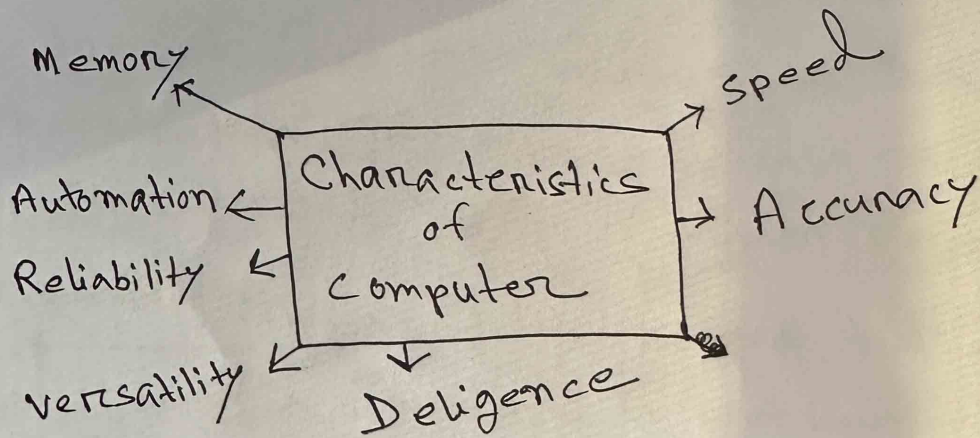 Memory
speed
Automation
Characteristics
of
computer
Accuracy
Reliability
versatility
Deligence